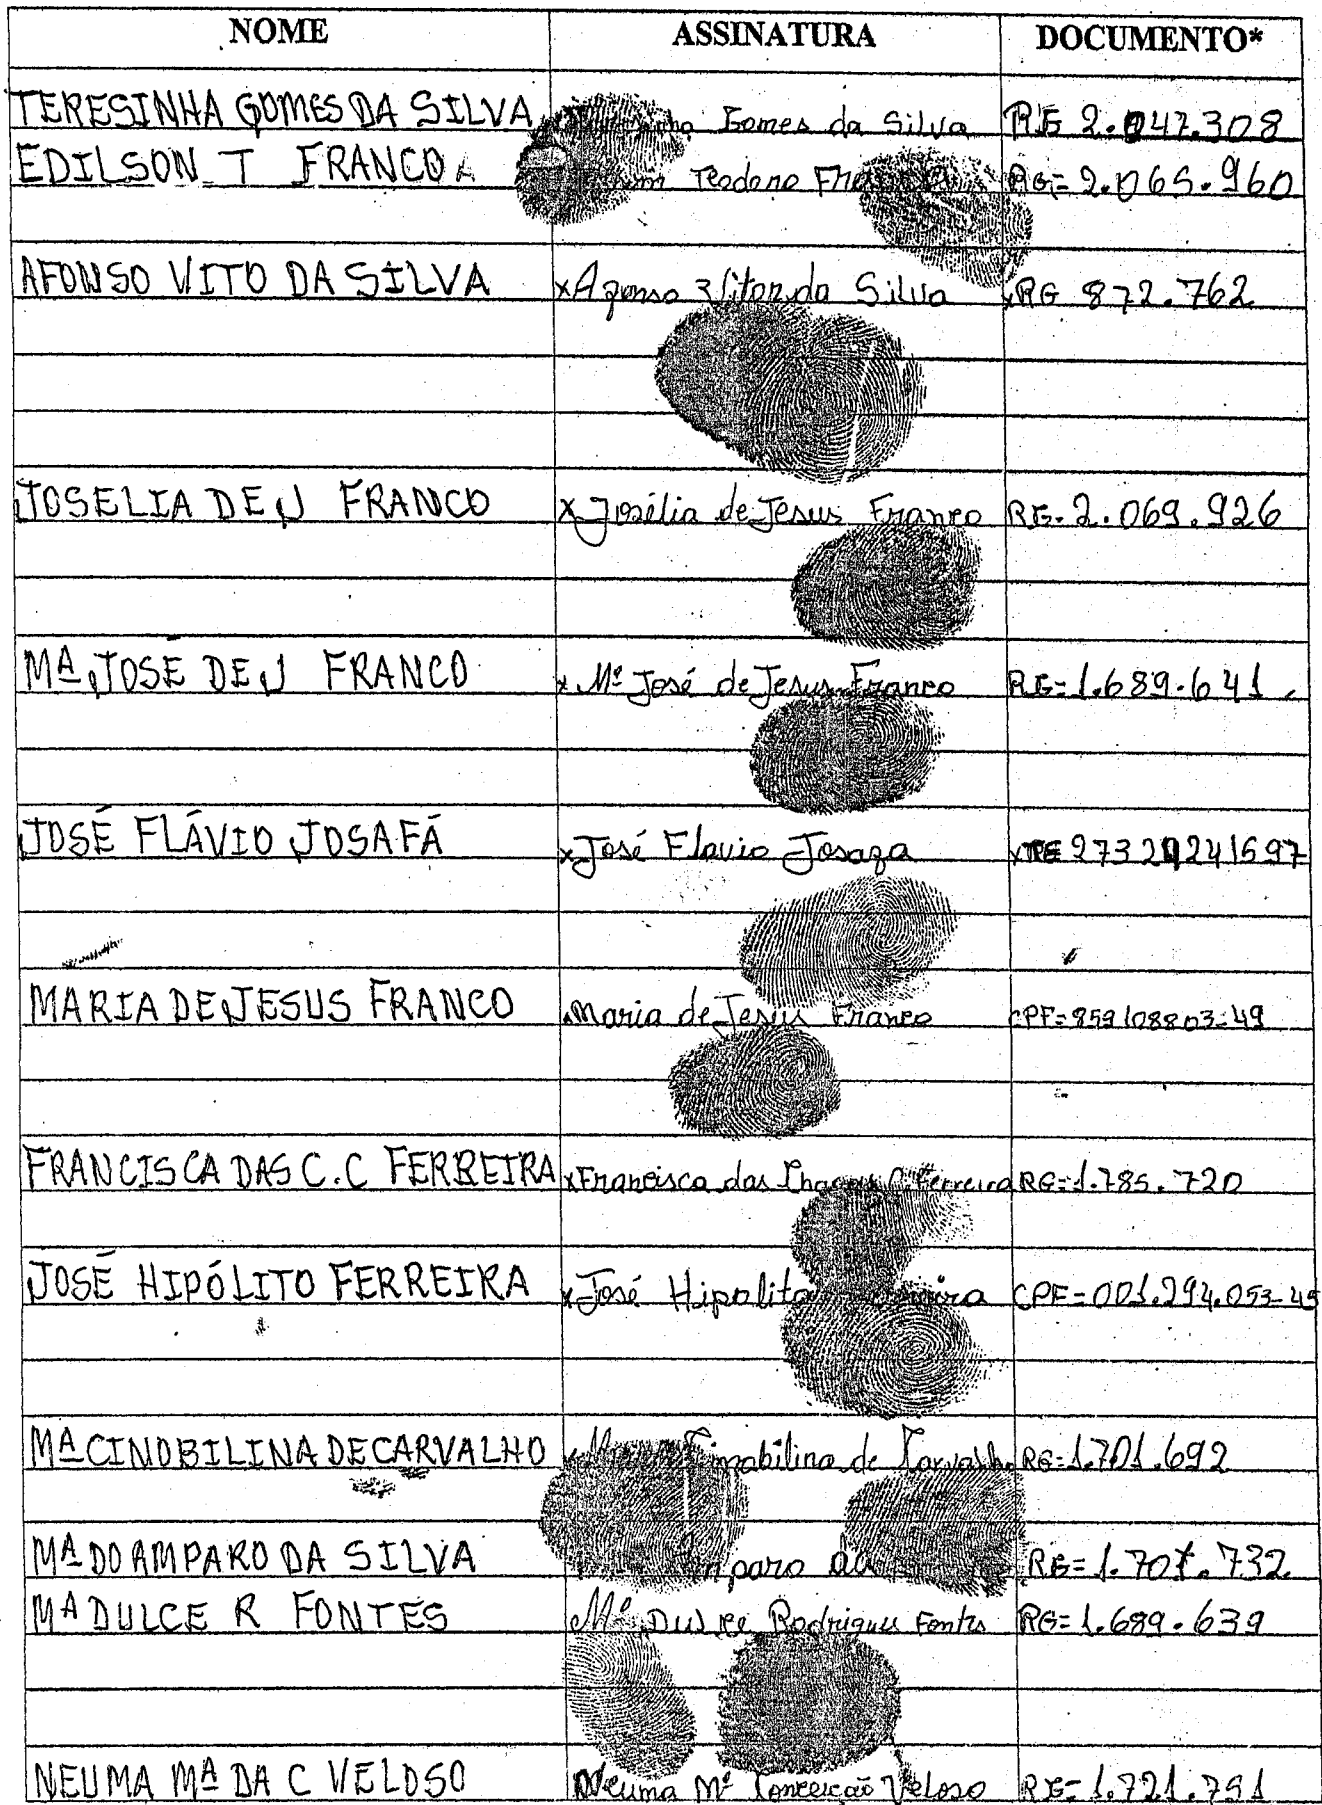 NOME ASSINATURA DOCUMENTO*
TERESINHA GOMES DA SILVA Gomes da Silva RG 2.047.308
EDILSON T FRANCO Teodoro RG=2.065.960
AFONSO VITO DA SILVA x Afonso Vitor da Silva RG 872.762
JOSELIA DE J FRANCO x Josélia de Jesus Franco RG. 2.069.926
Mª JOSE DE J FRANCO x Mª José de Jesus Franco RG=1.689.641
JOSÉ FLÁVIO JOSAFÁ x José Flavio Josafa
MARIA DE JESUS FRANCO Maria de Jesus Franco CPF=859108803-49
FRANCISCA DAS C.C FERREIRA x Francisca das Chagas C. Ferreira RG=1.785.720
JOSÉ HIPÓLITO FERREIRA x José Hipolito CPF=001.294.053-45
Mª CINOBILINA DE CARVALHO de Carvalho RG=1.701.692
Mª DO AMPARO DA SILVA RG=1.701.732
Mª DULCE R FONTES Mª Dulce Rodrigues Fontes RG=1.689.639
NEUMA Mª DA C VELOSO Neuma Mª Conceição Veloso RG=1.721.791